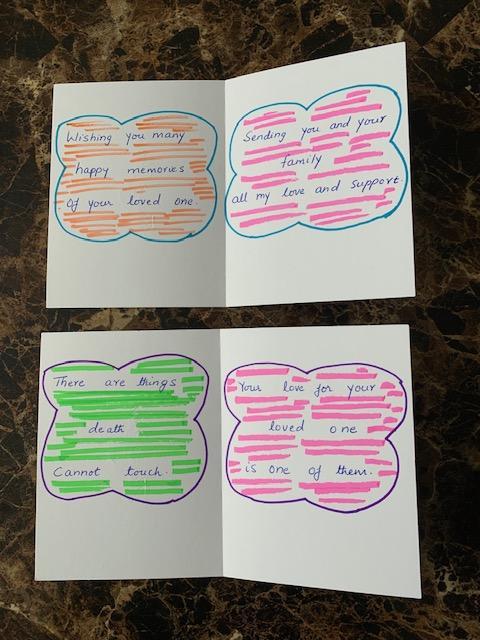 Wishing you many
happy memories
Of your loved one.
Sending you and your
family
all my love and support.
There are things
death
Cannot touch.
Your love for your
loved one
is one of them.